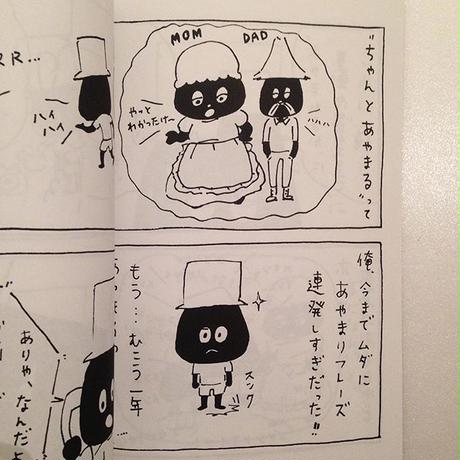 "ちゃんとあやまる"って
MOM
DAD
ハハハ
やっと
わかったけ〜
俺、今までムダに
あやまりフレーズ
連発しすぎだった!!
スック
もう…むこう一年
RR...
ハイ
ハイ
ありゃ、なんだよ